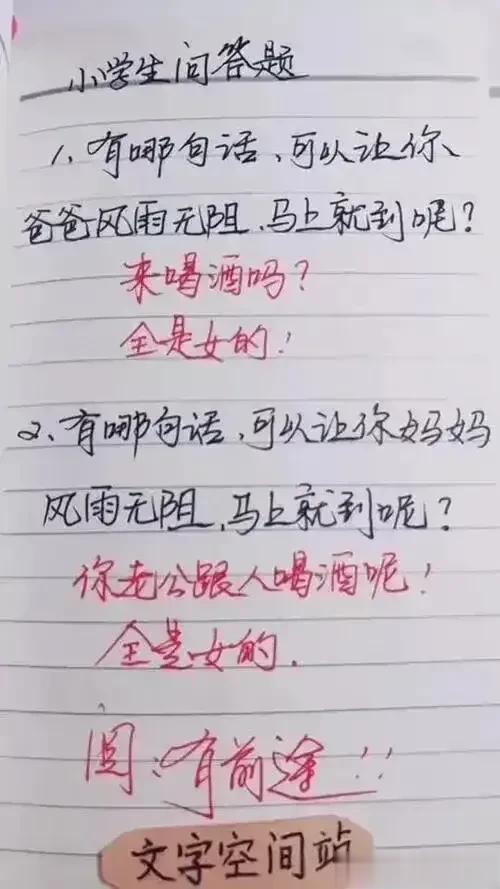 小学生问答题
1、有哪句话、可以让你、
爸爸风雨无阻、马上就到呢？
来喝酒吗？
全是女的！
2、有哪句话、可以让你妈妈
风雨无阻、马上就到呢？
你老公跟人喝酒呢！
全是女的.
阅:有前途!!
文字空间站